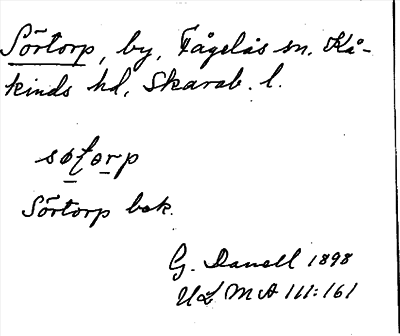 Sörtorp, by, Fågelås sn. Kå-
kinds hd, Skarab. l.
søtorp
Sörtorp bok.
G. Danell 1898
ULMA 111:161